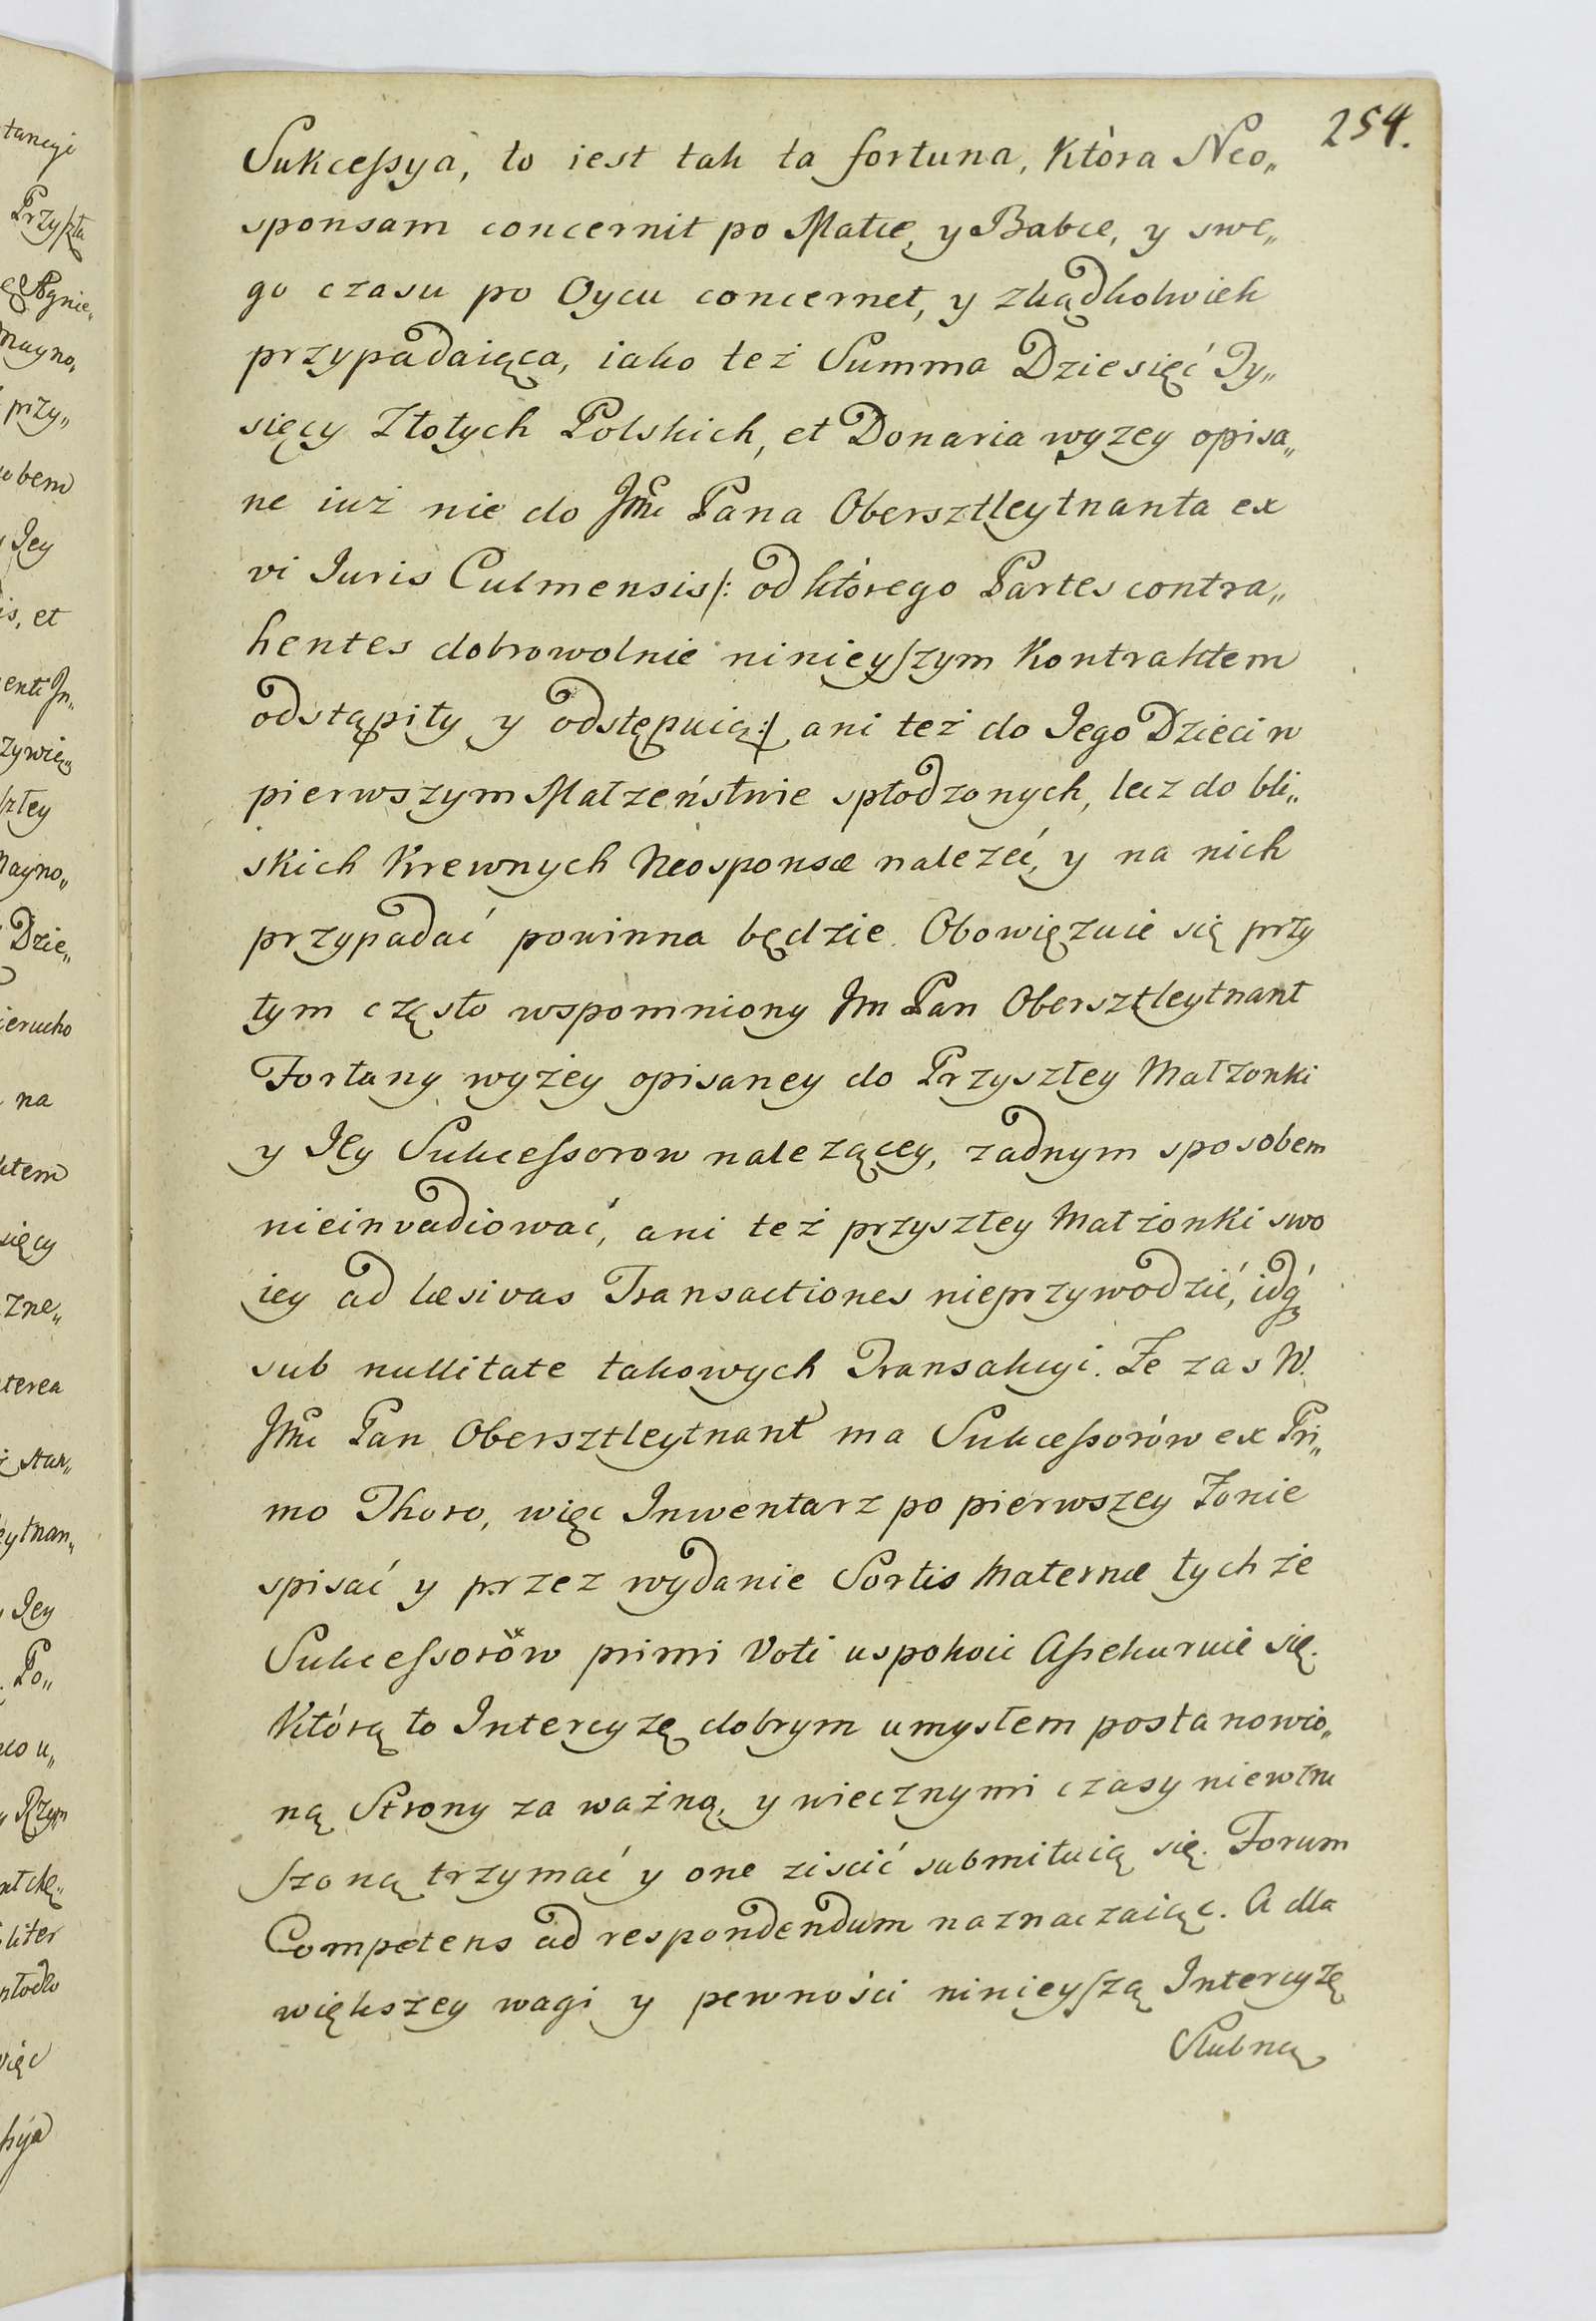 254.
Sukcessya, to iest tak ta fortuna, Która Neo„
sponsam concernit po Matce, y Babce, y swe„
go czasu po Oycu concernet, y zkądkolwiek
przypadaiąca, iako też Summa Dziesięć Ty„
sięcy Złotych Polskich, et Donaria wyzey opisa„
ne iuż nie do Jmc Pana Obersztleytnanta ex
vi Iuris Culmensis /: od którego Partes contra„
hentes dobrowolnie ninieyszym Kontraktem
odstąpiły y odstępuią :/ ani też do Iego Dzieci w
pierwszym Małzeństwie spłodzonych, lecz do bli„
skich Krewnych Neosponsæ nalezéć, y na nich
przypadać powinna będzie. Obowięzuie się przy
tym często wspomniony Jm Pan Obersztleytnant
Fortuny wyżey opisaney do Przyszłey Małzonki
y Iey Sukcessorow nalezącey, zadnym sposobem
nieinvadiować, ani też przyszłey Małżonki swo
iey ad læsivas Transactiones nieprzywodzić, idą
sub nullitate takowych Transakcyi. Ze zas W.
Jmc Pan Obersztleytnant ma Sukcessorów ex Pri„
mo Thoro, więc Inwentarz po pierwszey Zonie
spisać y przez wydanie Sortis Maternæ tychże
Sukcessorów primi Voti uspokoic Assekuruie się.
Którą to Intercyzę dobrym umysłem postanowio„
ną Strony za ważną, y wiecznymi czasy niewzru
szoną trzymać y one ziscić submituią się. Forum
Competens ad respondendum naznaczaiąc. A dla
większey wagi y pewności ninieyszą Intercyzę
Slubną